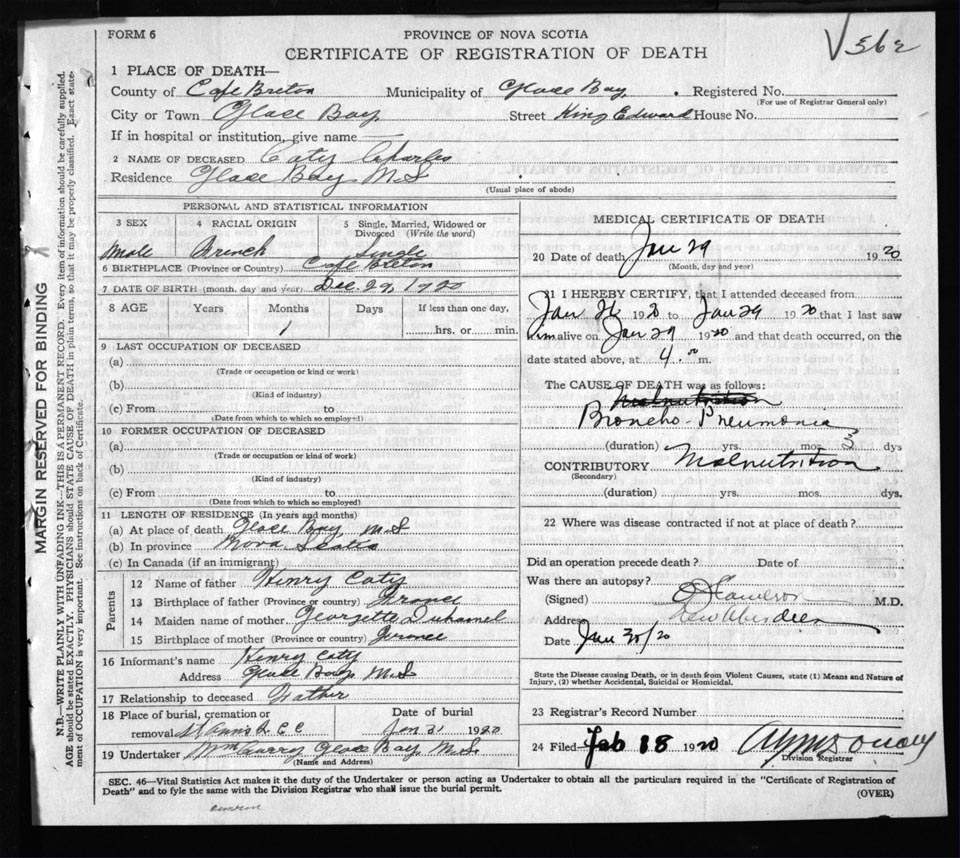 FORM 6
PROVINCE OF NOVA SCOTIA
CERTIFICATE OF REGISTRATION OF DEATH
V 3562
1 PLACE OF DEATH—
County of Cape Breton Municipality of Glace Bay Registered No.
(For use of Registrar General only)
City or Town Glace Bay Street King Edward House No.
If in hospital or institution, give name —
2 NAME OF DECEASED Caty Charles
Residence Glace Bay N S
(Usual place of abode)
PERSONAL AND STATISTICAL INFORMATION
3 SEX 4 RACIAL ORIGIN 5 Single, Married, Widowed or Divorced (Write the word)
Male French Single
6 BIRTHPLACE (Province or Country) Cape Breton
7 DATE OF BIRTH (month, day and year) Dec. 29, 1920
8 AGE Years Months Days If less than one day,
1 hrs. or min.
9 LAST OCCUPATION OF DECEASED
(a)
(Trade or occupation or kind or work)
(b)
(Kind of industry)
(c) From to
(Date from which to which so employed)
10 FORMER OCCUPATION OF DECEASED
(a)
(Trade or occupation or kind of work)
(b)
(Kind of industry)
(c) From to
(Date from which to which so employed)
11 LENGTH OF RESIDENCE (In years and months)
(a) At place of death Glace Bay N S
(b) In province Nova Scotia
(c) In Canada (if an immigrant)
Parents
12 Name of father Henry Caty
13 Birthplace of father (Province or country) France
14 Maiden name of mother Georgette Duhamel
15 Birthplace of mother (Province or country) France
16 Informant's name Henry Caty
Address Glace Bay N S
17 Relationship to deceased Father
18 Place of burial, cremation or Date of burial
removal St Anns R C C Jan 31 1920
19 Undertaker Wm Curry Glace Bay N S
(Name and Address)
MEDICAL CERTIFICATE OF DEATH
20 Date of death Jan 29 1920
(Month, day and year)
21 I HEREBY CERTIFY, that I attended deceased from
Jan 26 1920 to Jan 29 1920 that I last saw
him alive on Jan 29 1920 and that death occurred, on the
date stated above, at 4.00 m.
The CAUSE OF DEATH was as follows:
Malnutrition
Broncho-Pneumonia
(duration) yrs. mos. 3 dys
CONTRIBUTORY Malnutrition
(Secondary)
(duration) yrs. mos. dys.
22 Where was disease contracted if not at place of death?
Did an operation precede death? Date of
Was there an autopsy?
(Signed) M.D.
Address New Aberdeen
Date Jan 30/20
State the Disease causing Death, or in death from Violent Causes, state (1) Means and Nature of
Injury, (2) whether Accidental, Suicidal or Homicidal.
23 Registrar's Record Number
24 Filed Feb 18 1920
Division Registrar
SEC. 46—Vital Statistics Act makes it the duty of the Undertaker or person acting as Undertaker to obtain all the particulars required in the "Certificate of Registration of
Death" and to fyle the same with the Division Registrar who shall issue the burial permit.
(OVER)
MARGIN RESERVED FOR BINDING
N.B.—WRITE PLAINLY WITH UNFADING INK—THIS IS A PERMANENT RECORD. Every item of information should be carefully supplied.
AGE should be stated EXACTLY. PHYSICIANS should STATE CAUSE OF DEATH in plain terms, so that it may be properly classified. Exact statement of OCCUPATION is very important. See instructions on back of Certificate.